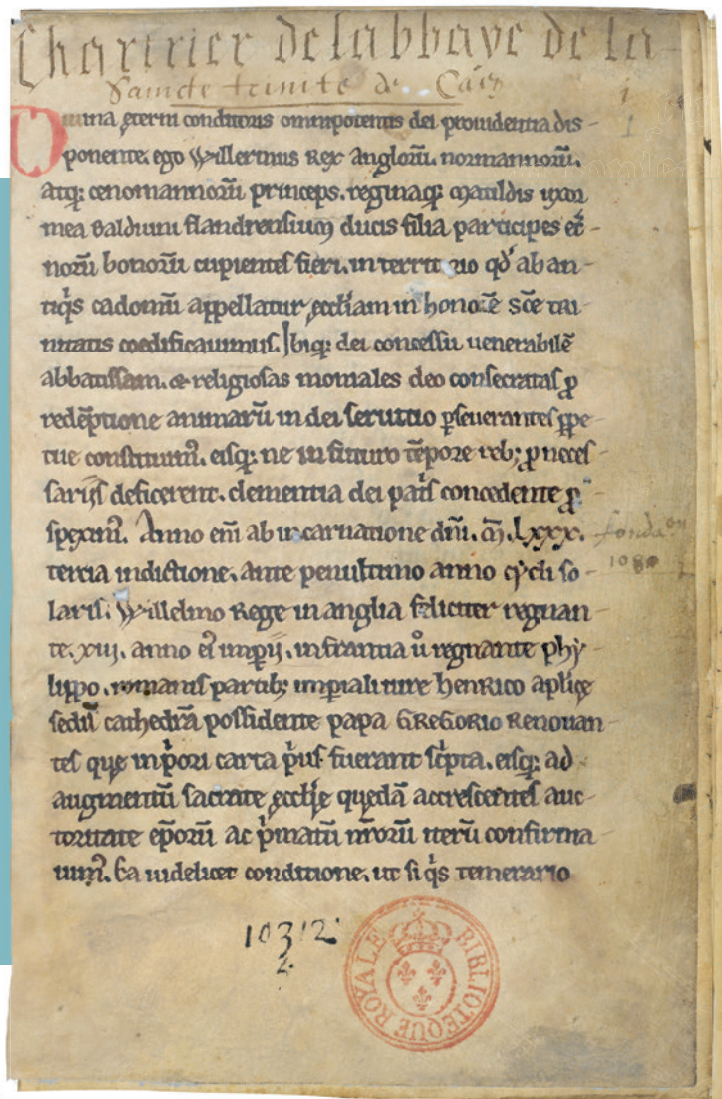 Chartrier de labbaye de la
Saincte trinite de Caen
1
1
Diuina ęterni conditoris omnipotentis dei prouidentia dis-
ponente. ego Willermus Rex anglorū. normannorū.
atq; cenomannorū princeps. reginaq; Matildis uxor
mea Balduini flandrensium ducis filia participes et̄-
norū bonorū cupientes fieri. in territorio qd̓ ab an-
tiq̓s cadomū appellatur ęccłiam in honorē sc̄e tri-
nitatis coedificauimus. Ibiq; dei concessu uenerabilē
abbatissam. & religiosas moniales deo consecratas ꝓ
redēptione animarū in dei seruitio ꝑseuerantes ꝑpe-
tue constituim᷒. eisq; ne in futuro tēpore reb; ꝓ neces-
sariis deficerent. clementia dei pat̓s concedente ꝓ-
speximꝰ. Anno eni᷑ ab incarnatione dn̄i. M̄. lxxx.
fondaon
1080
tercia indictione. ante penultimo anno cycli so-
laris. Willelmo Rege in anglia feliciter regnan-
te. xiij. anno ei᷒ imꝑij. in frantia u̓ regnante phy-
lippo. romanis partib; imperiali iure Henrico aplicę
sedis cathedrā possidente papa GREGORIO Renouan-
tes quę in p̓ori carta p̓us fuerant sc̓pta. eisq; ad
augmentū sacratę ęccłię quędā accrescentes auc-
toritate ep̄orū ac p̓matū nr̄orū iterū confirma-
uim᷒. Ea uidelicet conditione. ut si q̓s temerario
10312.
2.
BIBLIOTEQUE ROYALE